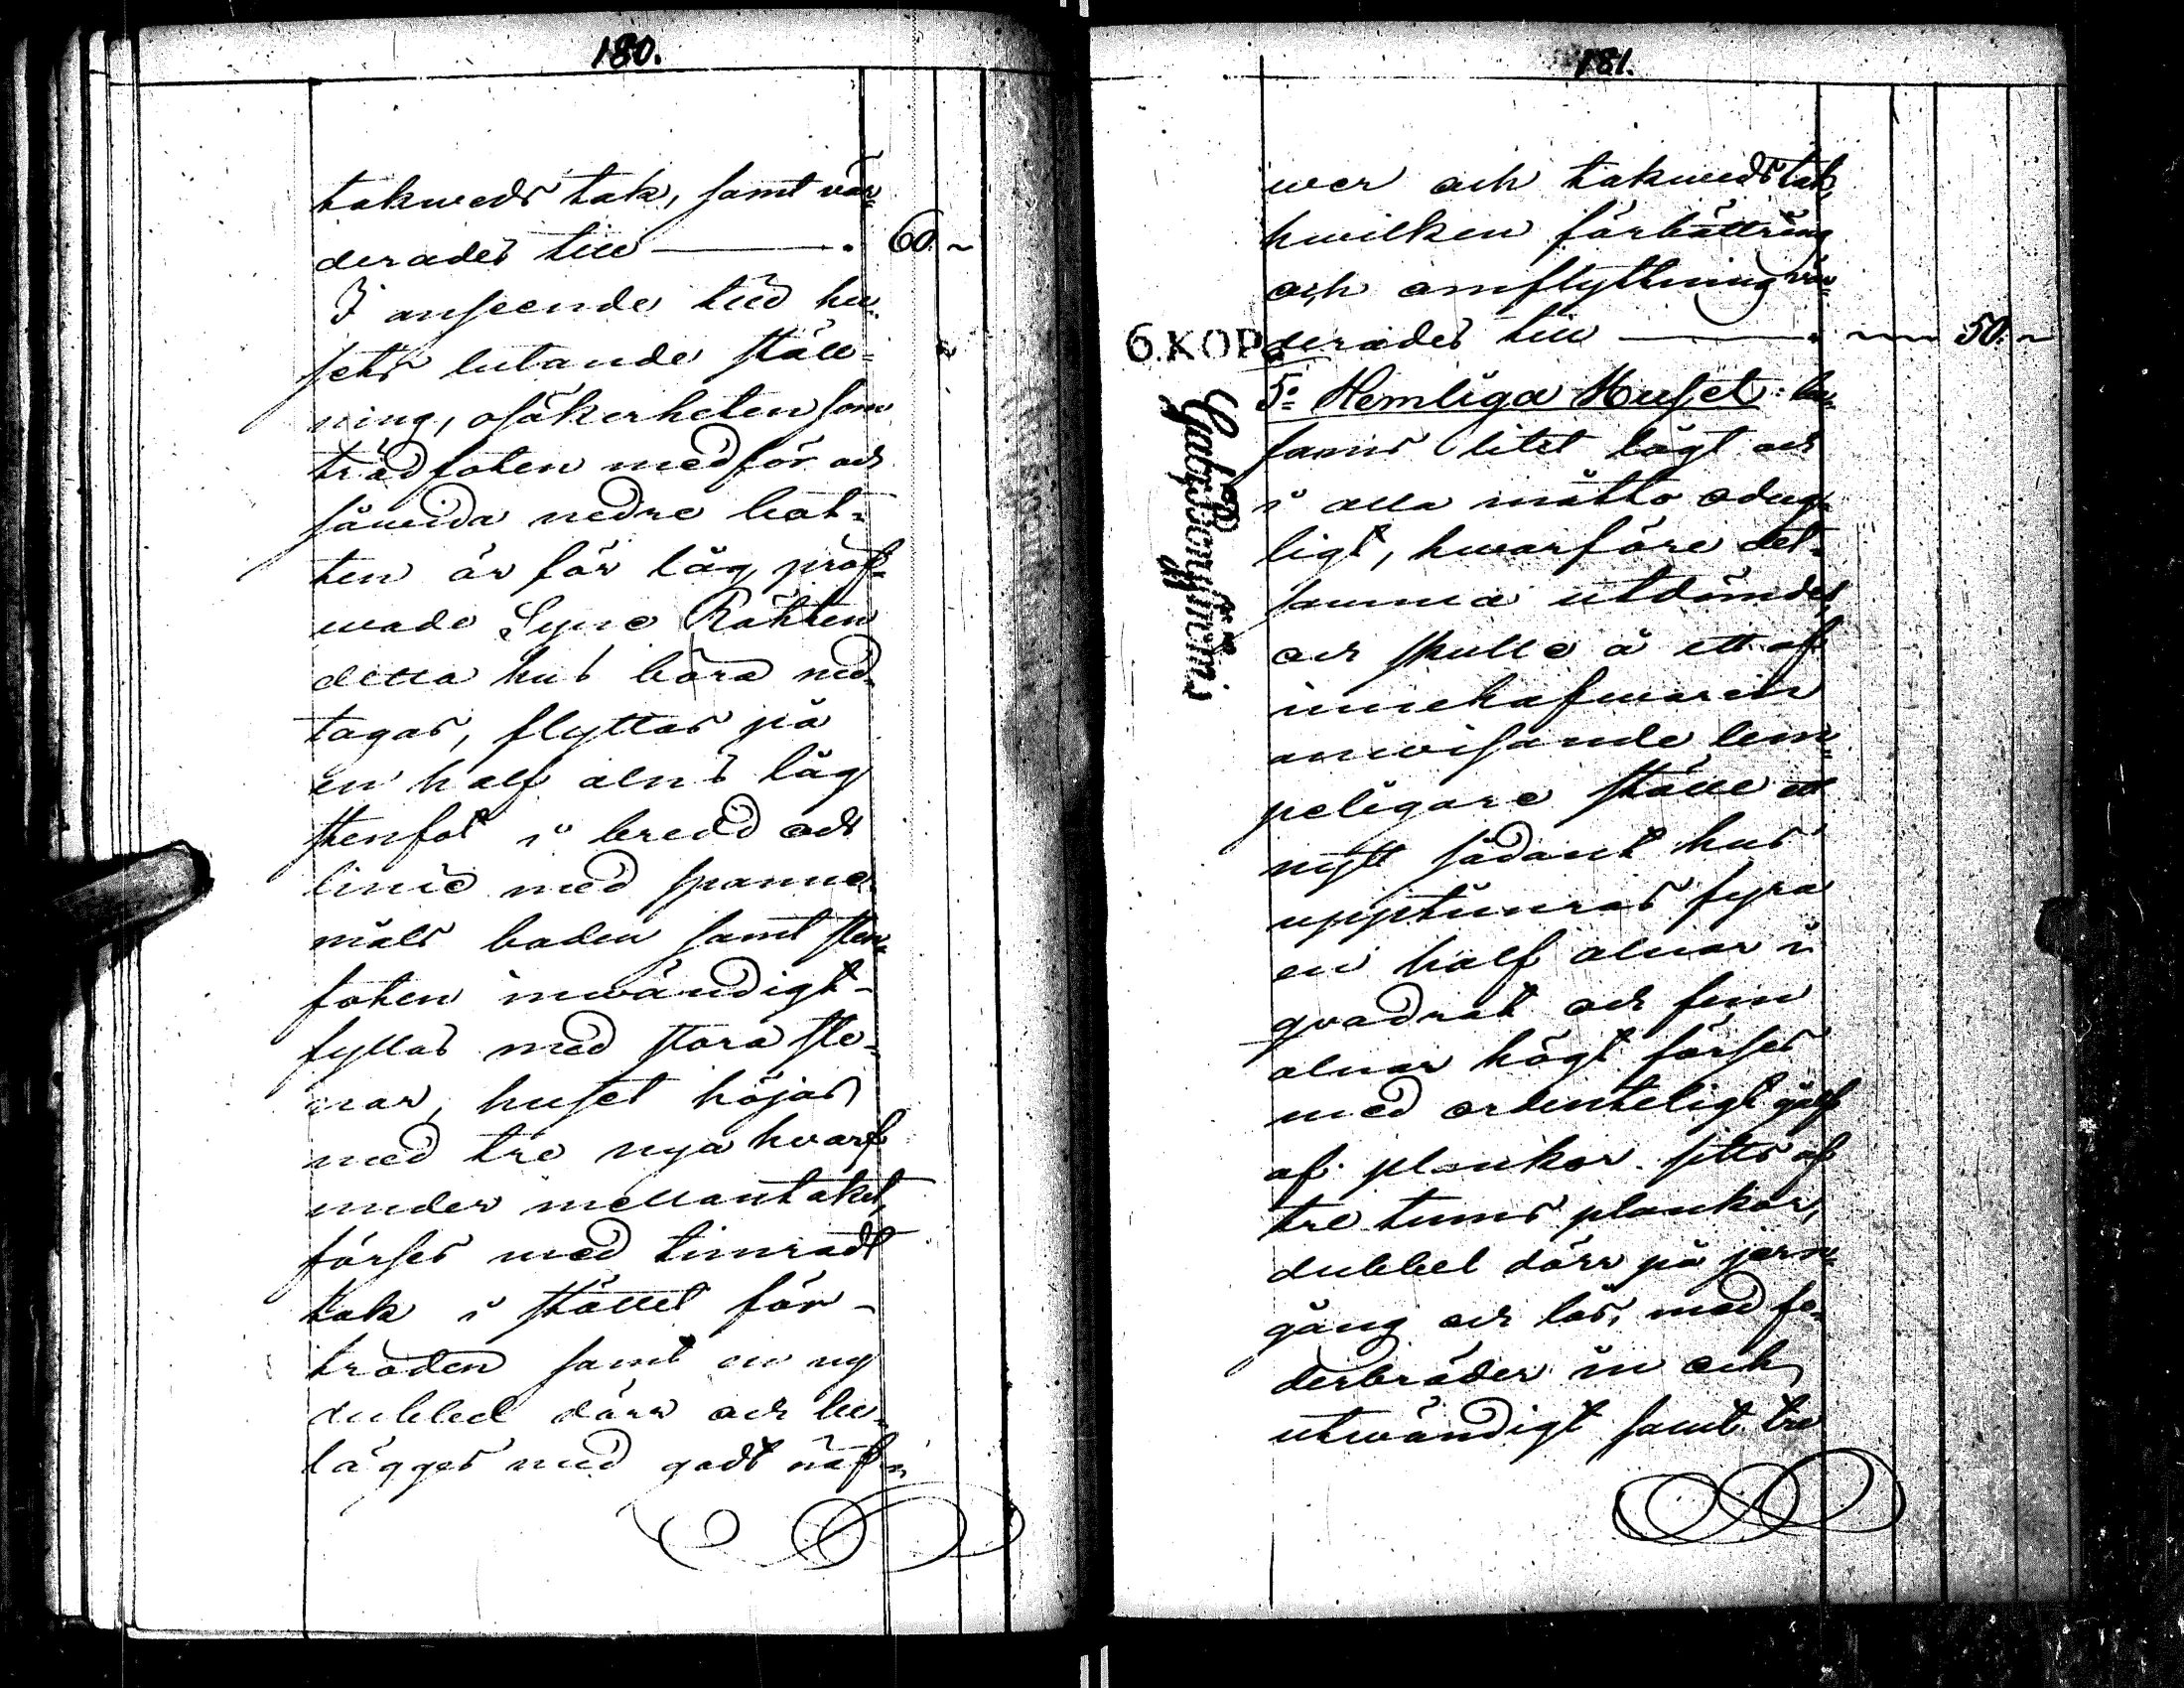 180.
takweds tak, samt vär-
derades till — . 60. ~
I anseende till hu-
sets lutande ställ-
ning, osäkerheten som
trädfoten medför och
såwida nedre bot-
ten är för låg, pröf-
wade Syne Rätten
detta hus böra ned-
tagas, flyttas på
en half alns låg
stenfot i bredd och
linie med spanne-
måls boden samt sten-
foten inwändigt-
fyllas med stora ste-
nar, huset höjas
med tre nya hvarf
under mellantaket,
förses med timradt
tak i stället för-
troden samt en ny
dubbel dörr och be-
lägges med godt näf-
181.
wer och takwedstak,
hwilken förbättring
och omflyttning vär-
derades till — . 50. ~
6. KOP.
5:o Hemliga Huset: be-
fanns litet lågt och
i alla måtto odug-
ligt, hwarföre det-
samma utdömdes,
och skulle å ett af
innehafwaren
anwisande läm-
peligare ställe ett
nytt sådant hus
upptimras fyra
en half alnar i
qvadrat och fem
alnar högt förses
med ordenteligt golf
af plankor, sits af
tre tums plankor,
dubbel dörr på jern-
gång och lås, med fo-
derbräder in och
utwändigt samt tre